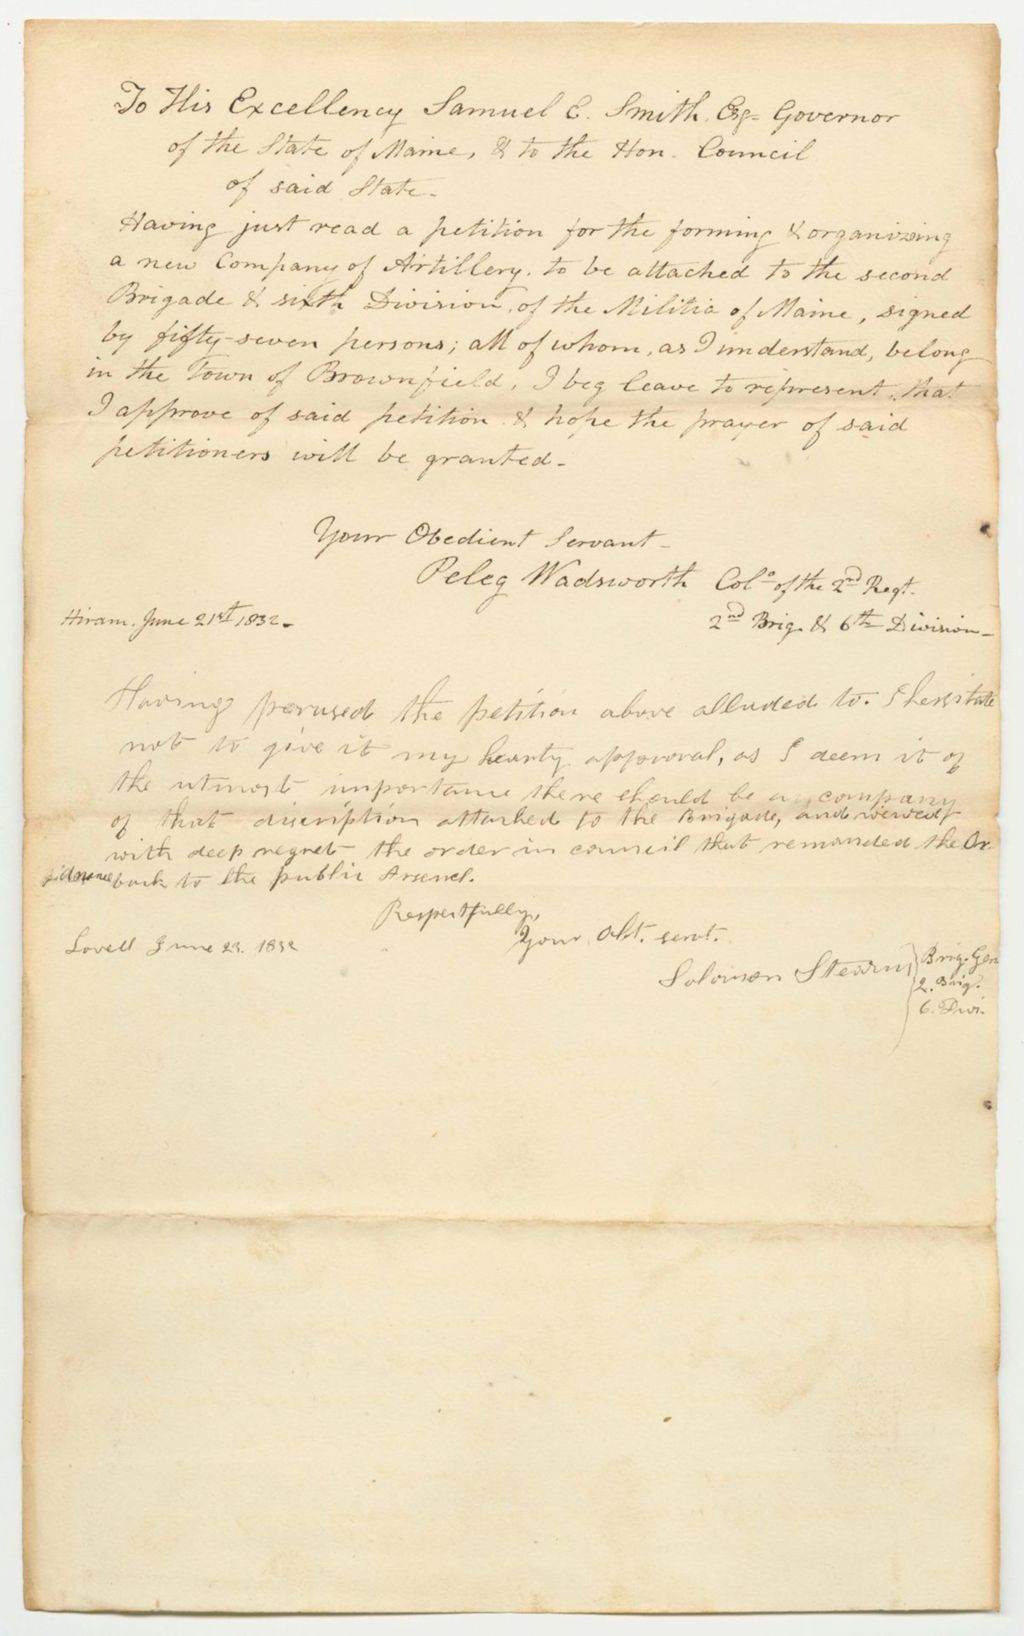 To His Excellency Samuel E. Smith. Esq= Governor
of the State of Maine, & to the Hon. Council
of said State-
Having just read a petition for the forming & organizing
a new Company of Artillery. to be attached to the second
Brigade & sixth Division, of the Militia of Maine, signed
by fifty-seven persons; all of whom, as I understand, belong
in the Town of Brownfield, I beg leave to represent, that
I approve of said petition & hope the prayer of said
petitioners will be granted-
Your Obedient Servant-
Peleg Wadsworth Colo of the 2nd Regt.
Hiram. June 21st, 1832-
2nd Brig. & 6th Division-
Having perused the petition above alluded to. I hesitate
not to give it my hearty approval, as I deem it of
the utmost importance there should be a company
of that discription attached to the Brigade, and
with deep regret the order in council that remanded the Or-
back to the public Arsenel.
Respectfully,
Your obt. servt.
Lovell June 23. 1832
Solomon Stearns Brig. Gen
2. Brig.
6. Divi.